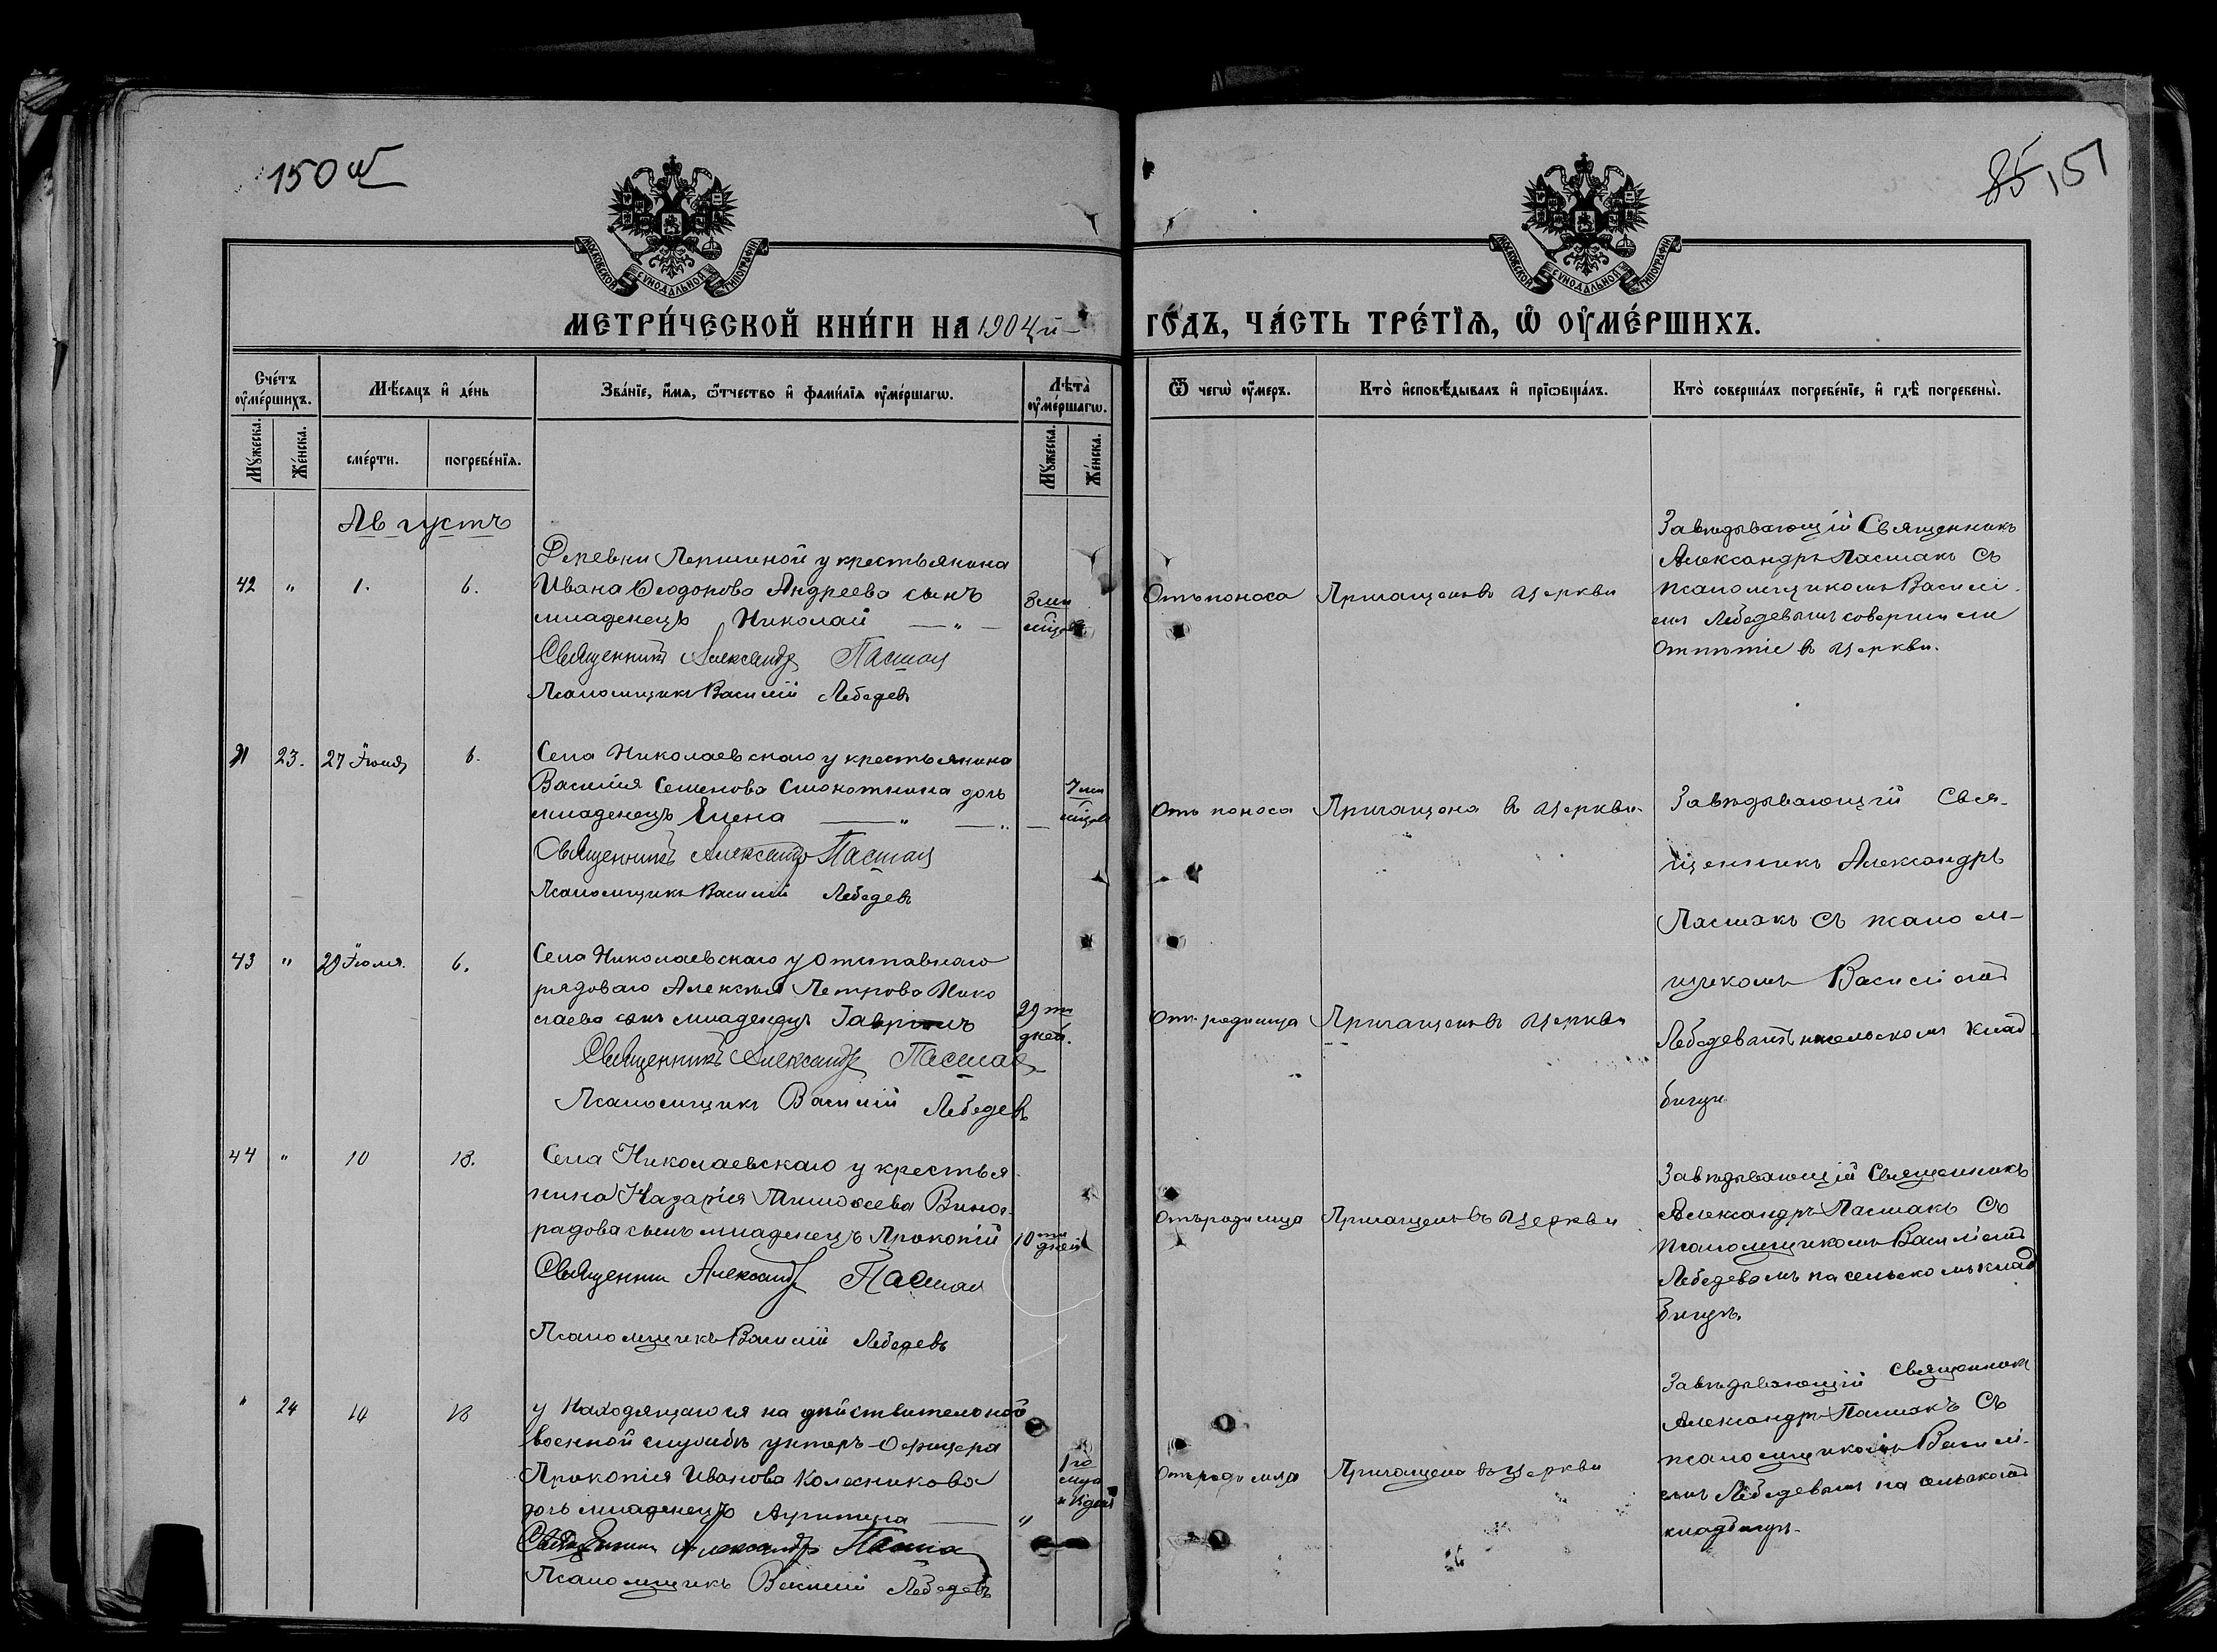 150 об
85 151
МОСКОВСКОЙ СѴНОДАЛЬНОЙ ТИПОГРАФІИ
МОСКОВСКОЙ СѴНОДАЛЬНОЙ ТИПОГРАФІИ
МЕТРИ́ЧЕСКОЙ КНИ́ГИ НА 1904й
ГО́ДЪ, ЧА́СТЬ ТРЕ́ТІѦ, Ѡ҆ ОУ҆МЕ́РШИХЪ.
Сче́тъ оу҆ме́ршихъ.
Мѣ́сяцъ и҆ де́нь
Зва́нїе, и҆́мѧ, ѻ҆́тчество и҆ фами́лїѧ оу҆ме́ршагѡ.
Лѣта̀ оу҆ме́ршагѡ.
Ѿ чегѡ̀ оу҆́меръ.
Кто̀ и҆сповѣ́дывалъ и҆ прїѡбща́лъ.
Кто̀ соверша́лъ погребе́нїе, и҆ гдѣ̀ погребены̀.
Мꙋ́жеска.
Же́нска.
сме́рти.
погребе́нїѧ.
Мꙋ́жеска.
Же́нска.
Августъ
42 " 1. 6.
Деревни Лермоной у крестьянина
Ивана Ѳеодорова Андреева сынъ
младенецъ Николай — " —
Священникъ Александръ Пасмак
Псаломщикъ Василій Лебедевъ
8 ми
мѣсяц
Отъ поноса
Причащенъ въ Церкви
Завѣдывающій Священникъ
Александръ Пасмакъ съ
псаломщикомъ Василі-
емъ Лебедевымъ совершили
отпѣтіе въ Церкви.
23. 27 Іюля 6.
Села Николаевскаго у крестьянина
Василія Семенова Смокотнина дочь
младенецъ Елена — " — " —
Священникъ Александръ Пасмак
Псаломщикъ Василій Лебедевъ
7 ми
мѣсяц
Отъ поноса
Причащена въ Церкви
Завѣдывающій Свя-
щенникъ Александръ
Пасмакъ съ псалом-
щикомъ Василіемъ
Лебедевымъ на сельскомъ клад
бищѣ
43 " 29 Іюля. 6.
Села Николаевскаго у отставнаго
рядоваго Алексѣя Петрова Нико
лаева сынъ младенецъ Гавріилъ
Священникъ Александръ Пасмак
Псаломщикъ Василій Лебедевъ
29 ти
дней.
Отъ родимца
Причащенъ въ Церкви
44 " 10 18.
Села Николаевскаго у крестья-
нина Назарія Тимоѳеева Виног-
радова сынъ младенецъ Прокопій
Священник Александръ Пасмак
Псаломщикъ Василій Лебедевъ
10 ти
дней
Отъ родимца
Причащенъ въ Церкви
Завѣдывающій Священникъ
Александръ Пасмакъ Съ
псаломщикомъ Василіемъ
Лебедевымъ на сельскомъ клад
бищѣ.
" 24 14 18
у Находящагося на дѣйствительной
военной службѣ унтеръ-Офицера
Прокопія Иванова Колесникова
дочь младенецъ Агрипина — "
Священник Александръ Пасмак
Псаломщикъ Василій Лебедевъ
1 го
мца
Отъ родимца
Причащена въ Церкви
Завѣдывающій Священникъ
Александръ Пасмакъ Съ
псаломщикомъ Василі-
емъ Лебедевымъ на сельскомъ
кладбищѣ.